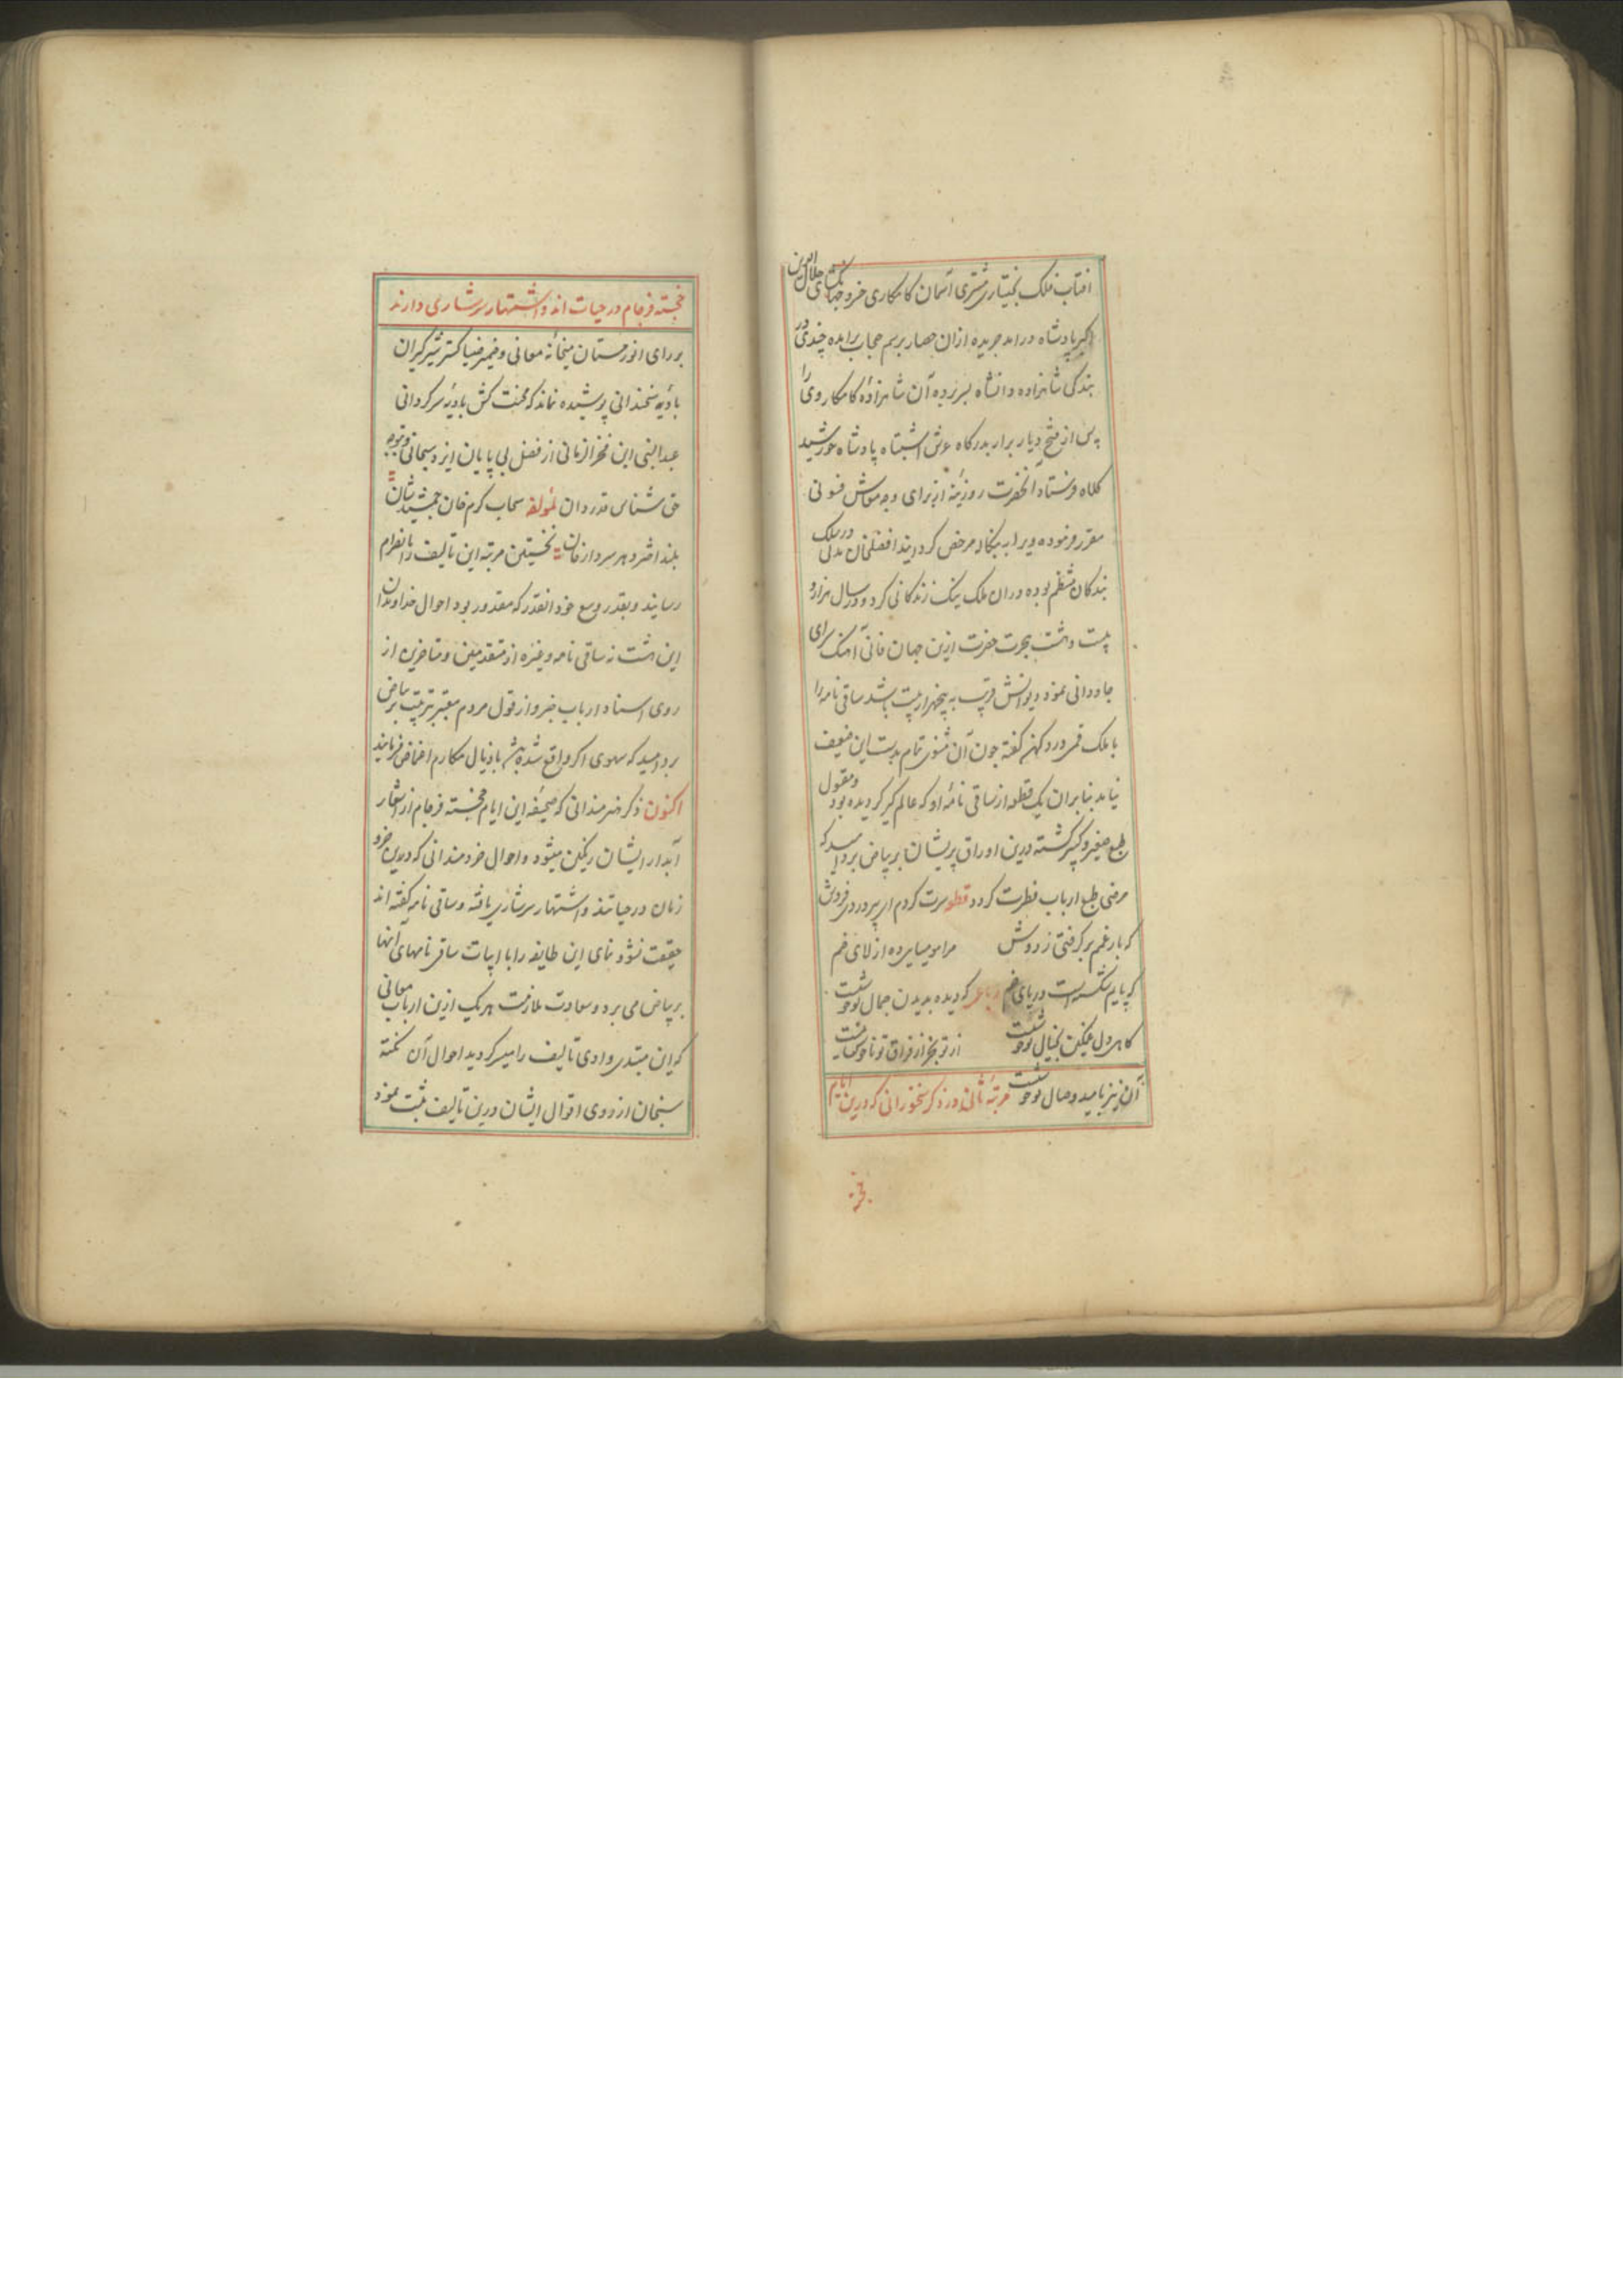 افتاب فلک بختیاری مشتری آسمان کامکاری خسرو جهانگشای جلال الدین
اکبر پادشاه درامد جریده ازان حصار برسم حجاب برامده چندی در
بندگی شاهزاده دانشاه بسر برده آن شاهزاده کامکار وی را
پس از فتح دیار برار بدرگاه عرش اشتباه پادشاه خورشید
کلاه فرستاد انحضرت روزینه از برای وجه معاش فسونی
مقرر فرموده ویرا به بنگاله مرخص کردانید افضلخان در سلک
بندکان منتظم بوده دران ملک نیک زندکانی کرد و در سال هزار و
بیست و هشت هجرت حضرت ازین جهان فانی آهنک سرای
جاودانی نمود دیوانش قریب به پنجهزار بیت باشد ساقی نامه را
با ملک قمی در دکهن کفته چون آن مثنوی تمام بدست این ضعیف
نیامد بنابران یک قطعه از ساقی نامه او که عالم کیر کردیده بود و مقبول
طبع صغیر و کبیر کشته درین اوراق پریشان بر بیاض برد امید که
مرضی طبع ارباب فطرت کردد قطعه سرت کردم ای پیر دردی فروش
که بار غمم بر کرفتی ز دوش مرا مومیایی ده از لای خم
که پایم شکسته است در پای خم رباعی که دیده بدیدن جمال تو خوشست
کاهی دل غمکین بخیال تو خوشست از تو بجز از فراق تو ناخوش نیست
آن نیز بامید وصال تو خوشست مرتبه ثانی در ذکر سخنورانی که درین ایام
خجسته
خجسته فرجام در حیات اند و اشتهار سرشاری دارند
بر رای انور مستان میخانه معانی و ضمیر ضیا کستر شیرکیران
بادیه سخندانی پوشیده نماند که محنت کش بادیه سرکردانی
عبدالنبی ابن فخرالزمانی از فضل بی پایان ایزد سبحانی و توجه
حق شناس قدردان لمولفه سحاب کرم خان جمشید شان
بلند اختر دهر سردار خان نخستین مرتبه این تالیف را بانصرام
رسانید و بقدر وسع خود انقدر که مقدور بود احوال خداوندان
این هشت نه ساقی نامه و غیره از متقدمین و متاخرین از
روی اسناد ارباب خبر و از قول مردم معتبر بترتیب بر بیاض
برد امید که سهوی اکر واقع شده باشد باذیال مکارم اغماض فرمایند
اکنون ذکر هنرمندانی که صحیفه این ایام خجسته فرجام از اشعار
آبدار ایشان رنکین میشود و احوال خردمندانی که درین جزو
زمان در حیاتند و اشتهار سرشاری یافته و ساقی نامه کفته اند
حقیقت نشو و نمای این طایفه را با ابیات ساقی نامهای آنها
بر بیاض می برد و سعادت ملازمت هر یک ازین ارباب معانی
که این مبتدی وادی تالیف را میسر کردید احوال آن نکته
سنجان از روی اقوال ایشان درین تالیف ثبت نمود